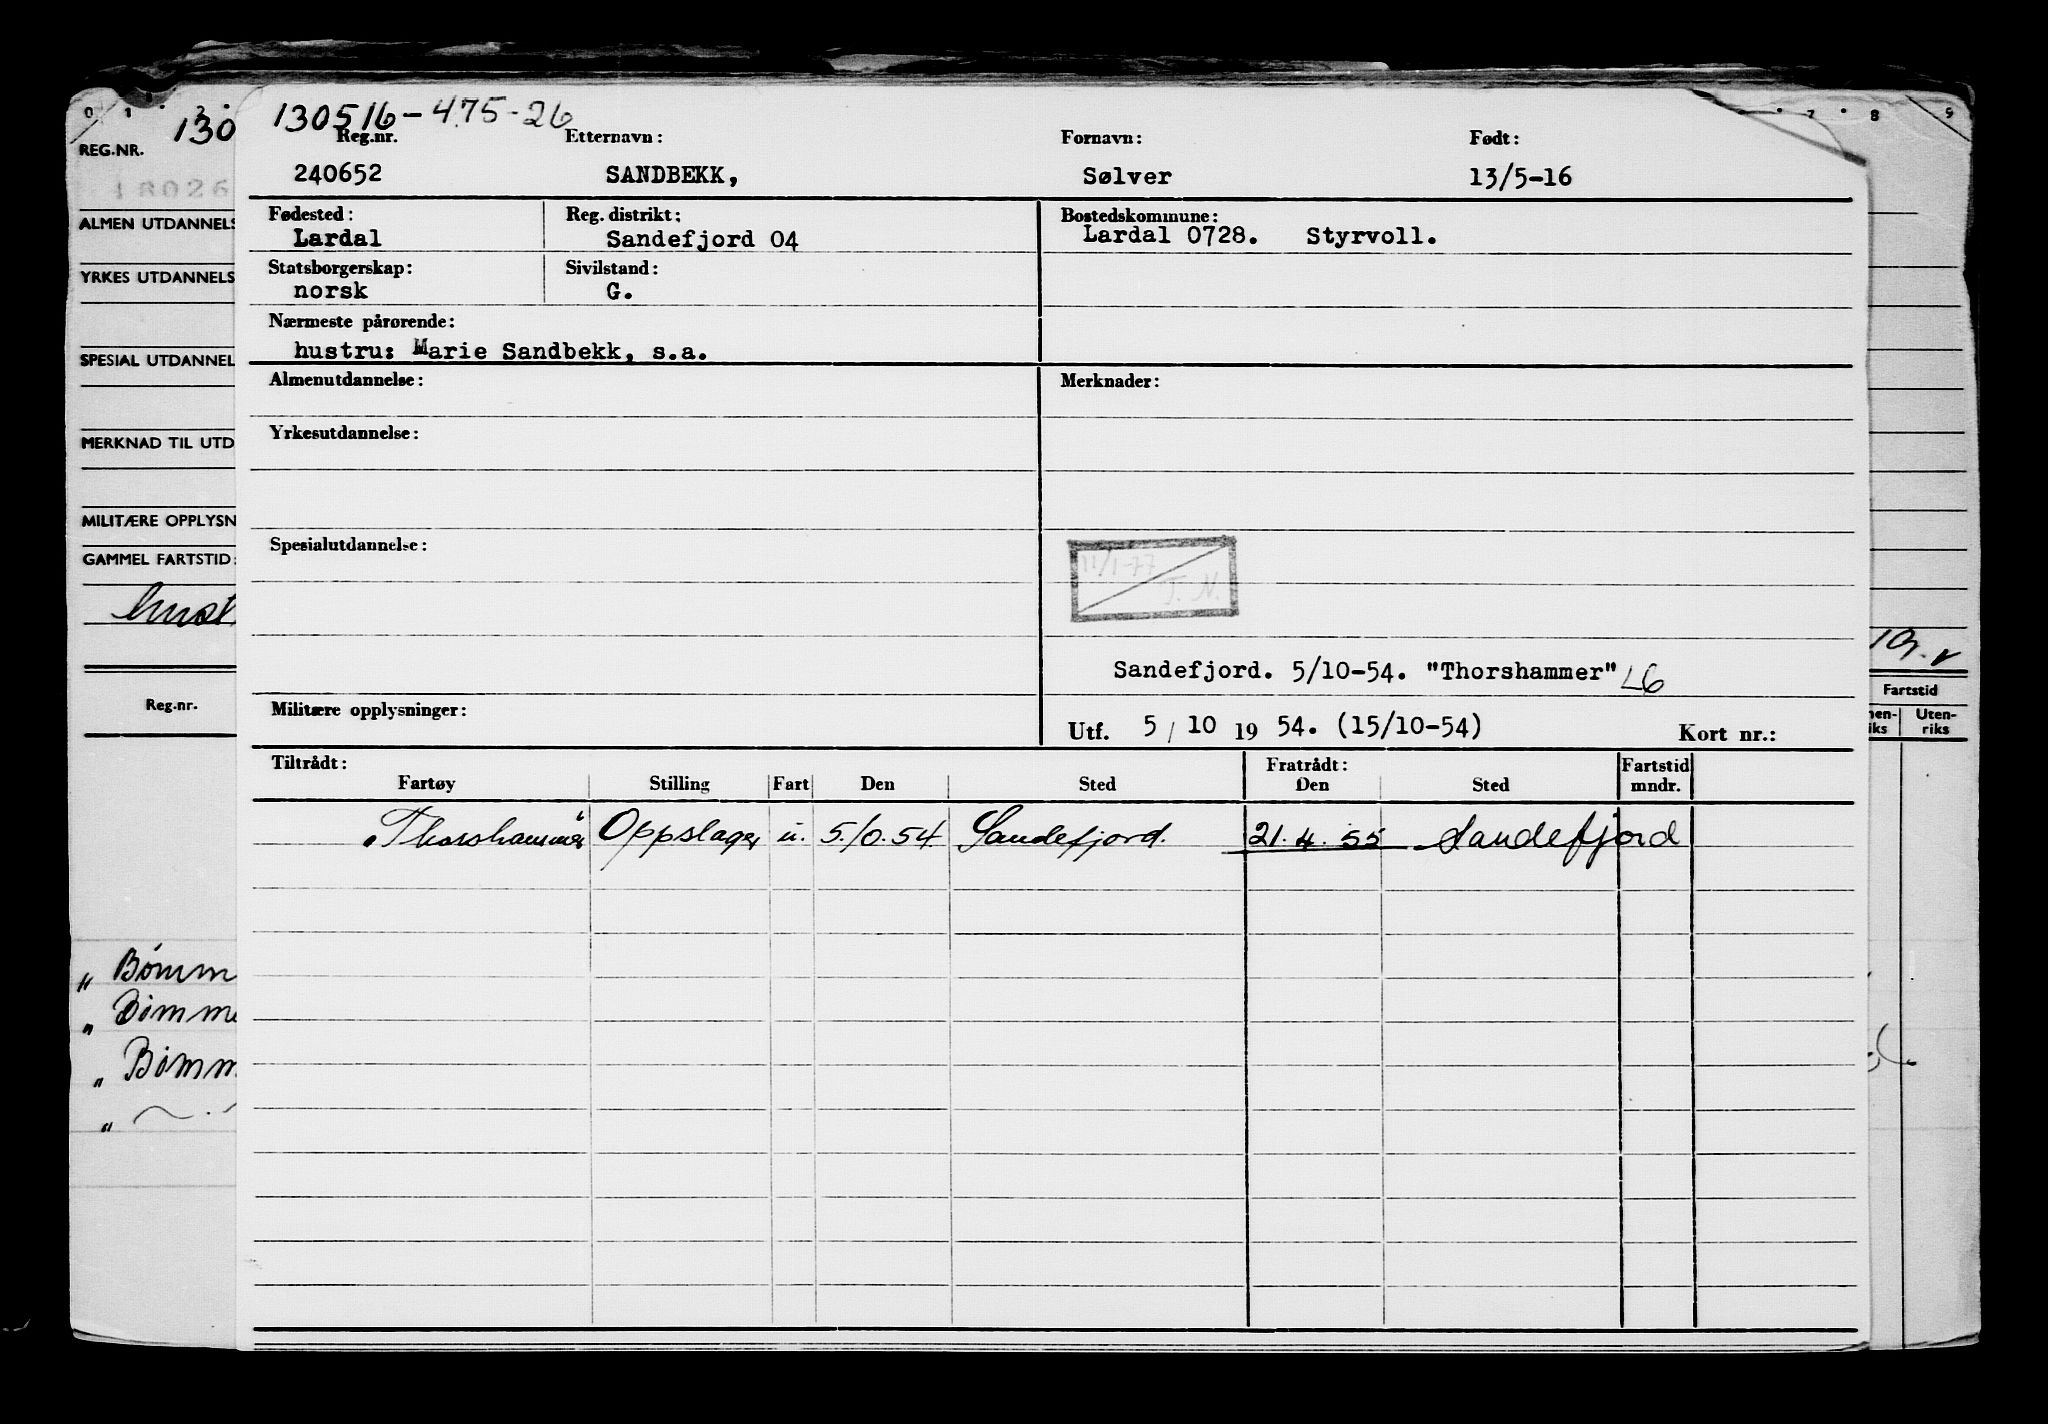 0 1 2 7 8 9
130 130516-475-26
REG.NR. Reg.nr. Etternavn: Fornavn: Født:
240652 SANDBEKK, Sølver 13/5-16
ALMEN UTDANNELS Fødested: Reg. distrikt: Bostedskommune:
Lardal Sandefjord 04 Lardal 0728. Styrvoll.
YRKES UTDANNELS Statsborgerskap: Sivilstand:
norsk G.
Nærmeste pårørende:
SPESIAL UTDANNEL hustru: Marie Sandbekk, s.a.
Almenutdannelse: Merknader:
MERKNAD TIL UTD Yrkesutdannelse:
MILITÆRE OPPLYSN
GAMMEL FARTSTID: Spesialutdannelse: 11/1-77
T. N.
Sandefjord. 5/10-54. "Thorshammer" L6
Reg.nr. Militære opplysninger: Fartstid
Utf. 5/10 19 54. (15/10-54) Kort nr.: Uten-
riks
Tiltrådt: Fratrådt: Fartstid
Fartøy Stilling Fart Den Sted Den Sted mndr.
"Thorshammer" Oppslager u. 5.10.54 Sandefjord. 21.4.55 Sandefjord
" Bømm
" Bømme
" Bømm
"